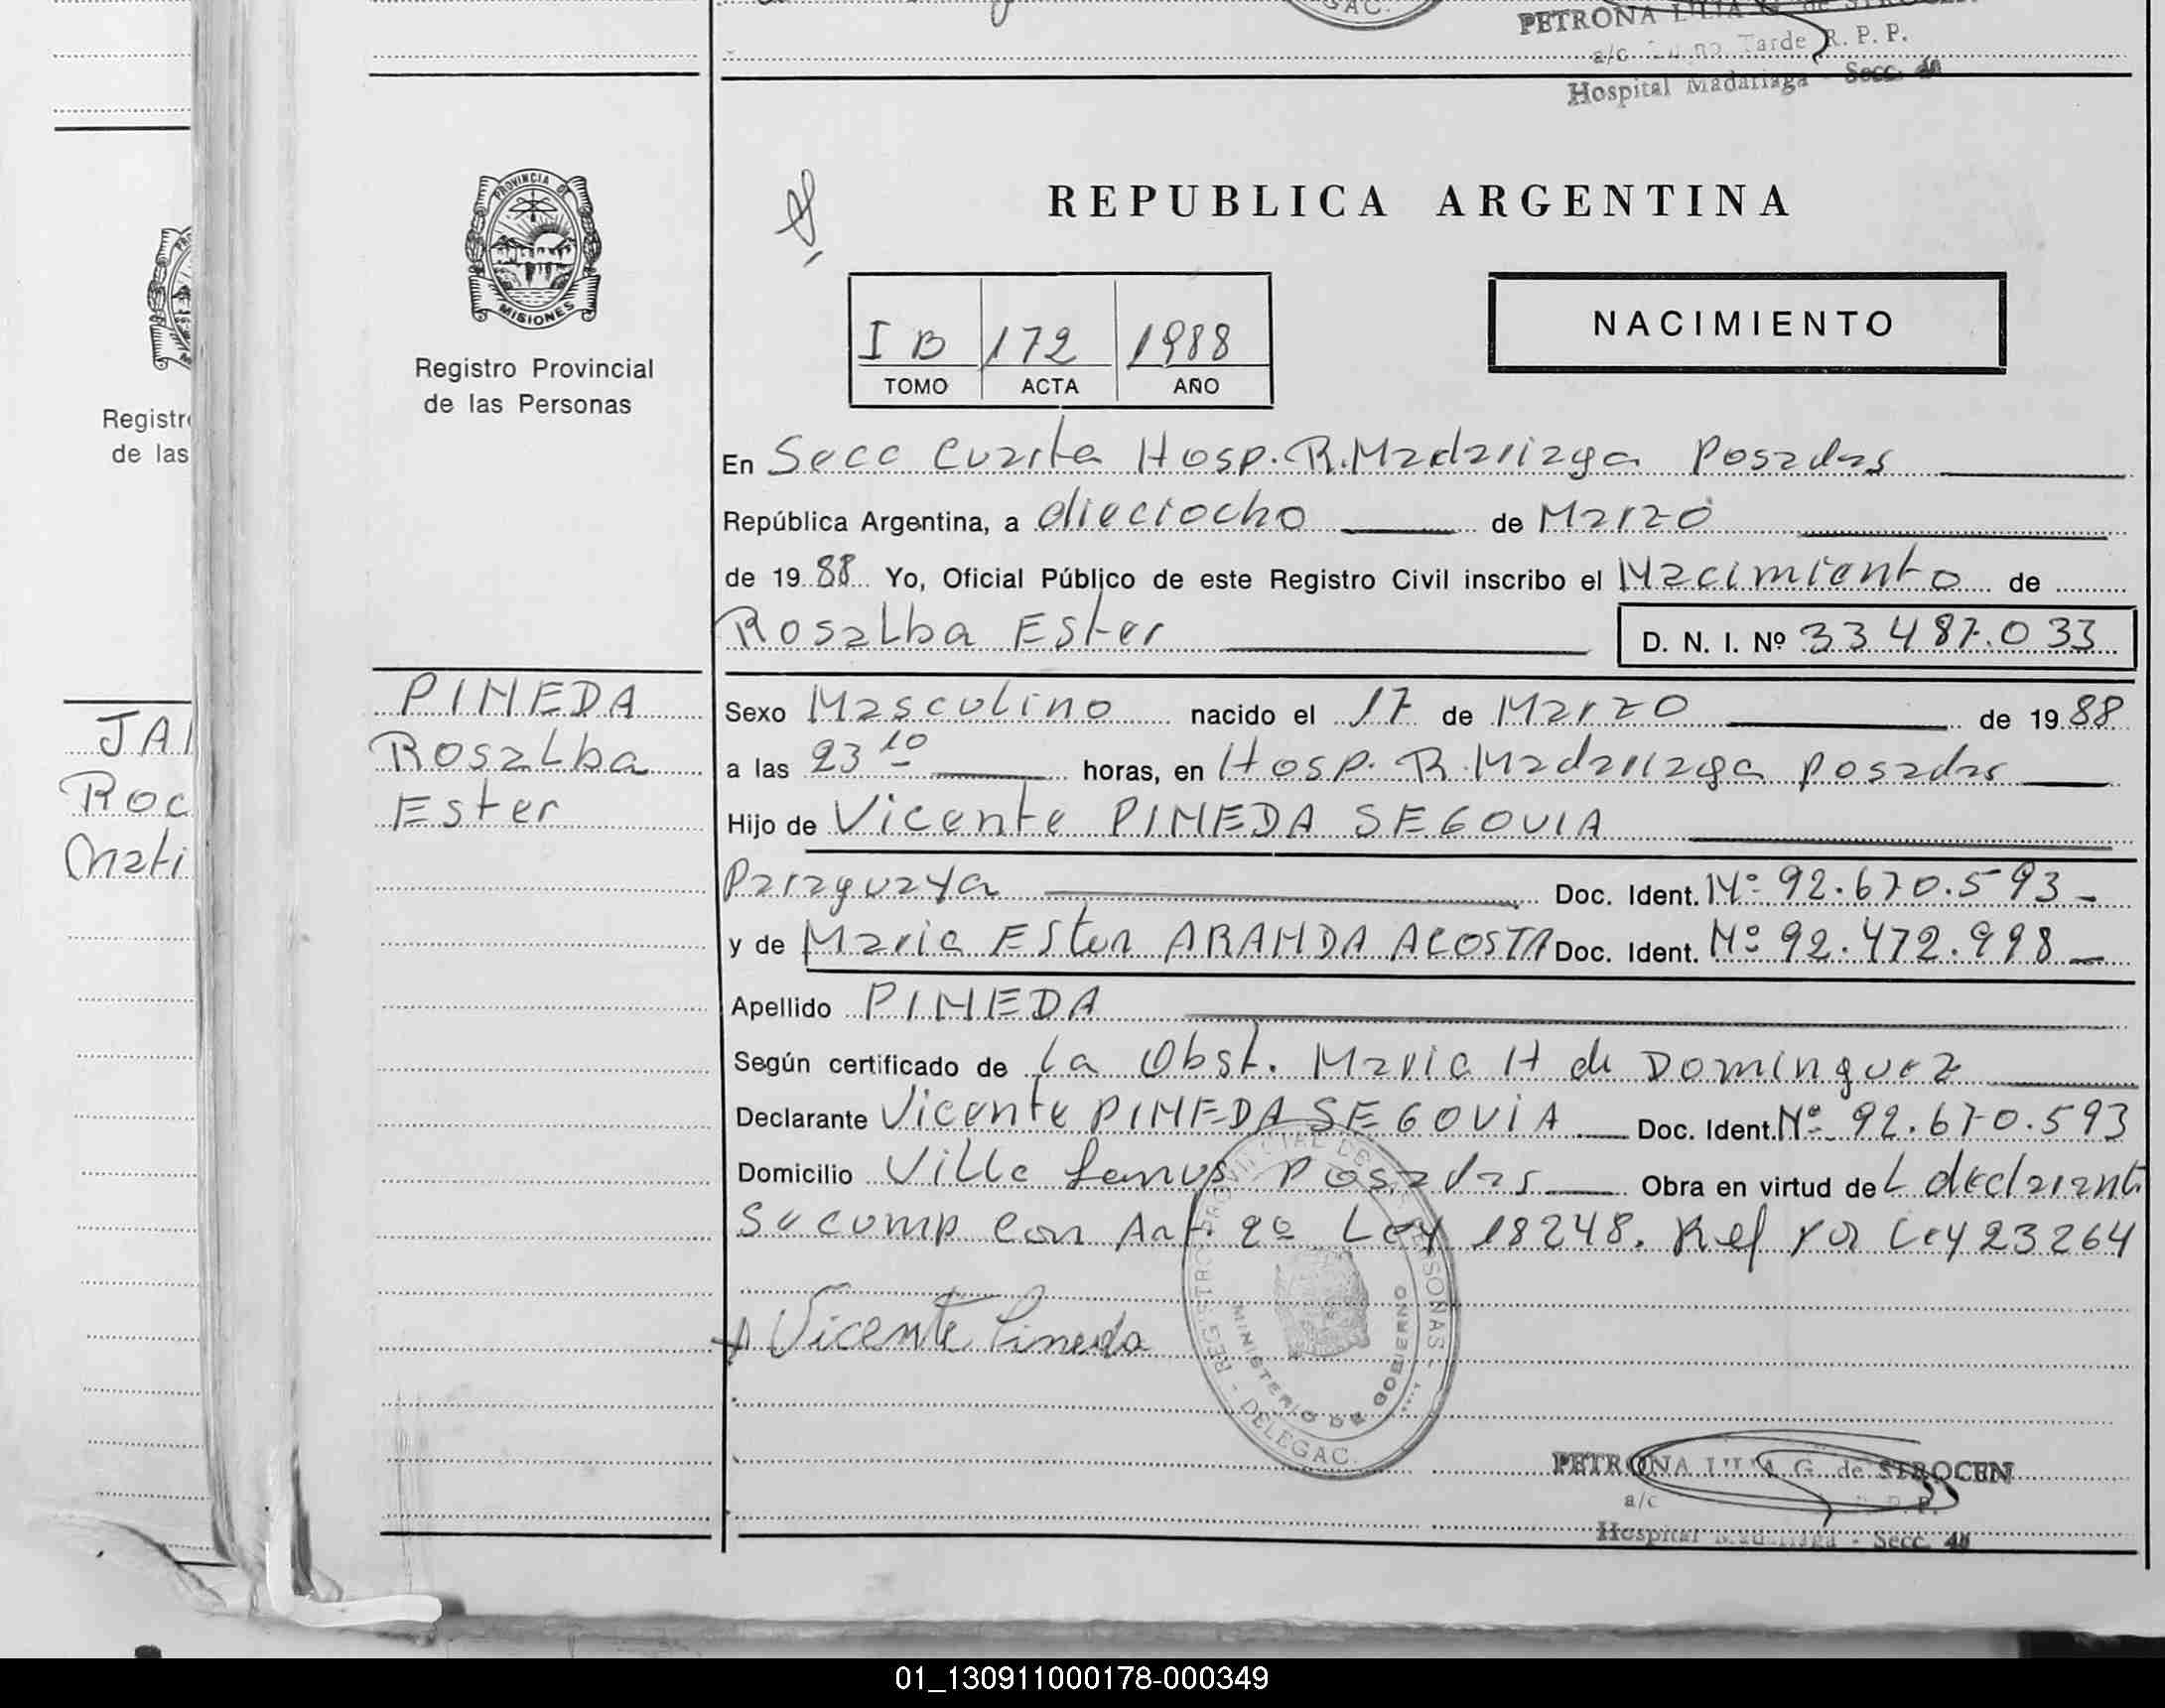 PETRONA LILIA G. de STROCEN
a/c Turno Tarde R. P. P.
Hospital Madariaga - Secc. 4a
PROVINCIA DE
MISIONES
Registro Provincial
de las Personas
REPUBLICA ARGENTINA
I B 172 1988
TOMO ACTA AÑO
NACIMIENTO
Registr
de las
En Secc Cuarta Hosp. R. Madariaga Posadas
República Argentina, a dieciocho de Marzo
de 19 88 Yo, Oficial Público de este Registro Civil inscribo el Nacimiento de
Rosalba Ester D. N. I. Nº 33 487.033
JA
Roc
Mati
PINEDA
Rosalba
Ester
Sexo Masculino nacido el 17 de Marzo de 19 88
a las 23 10 horas, en Hosp. R. Madariaga posadas
Hijo de Vicente PINEDA SEGOVIA
Paraguaya Doc. Ident. Nº 92.670.593-
y de Maria Ester ARANDA ACOSTA Doc. Ident. Nº 92.472.998-
Apellido PINEDA
Según certificado de la Obst. Maria H de Dominguez
Declarante Vicente PINEDA SEGOVIA Doc. Ident. Nº 92.670.593
Domicilio Villa Lanus Posadas Obra en virtud de L declarante
Se cump con Art. 2º Ley 18248. Ref por Ley 23264
Vicente Pineda
MINISTERIO DE GOBIERNO
DELEGAC.
PETRONA LILIA G. de STROCEN
a/c R. P. P.
Hospital Madariaga - Secc. 4a
01_130911000178-000349